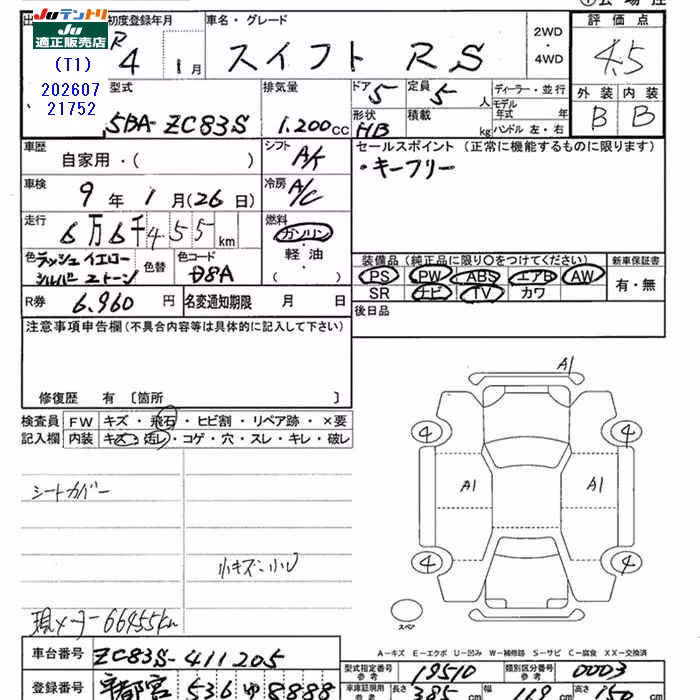 ① 会 場 控
JUテントリ
JU
適正販売店
(T1)
202607
21752
初度登録年月
R 4 1月
車名・グレード
スイフト RS
2WD
・
4WD
評価点
4.5
外装 内装
B B
型式
5BA- ZC83S
排気量
1.200cc
ドア 5
形状 HB
定員 5 人
積載 kg
ディーラー・並行
モデル
年式 年
ハンドル 左・右
車歴
自家用・( )
シフト A/F
セールスポイント (正常に機能するものに限ります)
・キーフリー
車検
9 年 1 月(26 日)
冷房 A/C
走行
6万6千455km
燃料
ガソリン
軽油
( )
色 ラッシュイエロー
シルバー 2トーン
色替
色コード
D8A
装備品 (純正品に限り○をつけてください)
PS PW ABS エアB AW
SR ナビ TV カワ
新車保証書
有・無
R券 6.960 円
名変通知期限 月 日
後日品
注意事項申告欄(不具合内容等は具体的に記入して下さい)
修復歴 有 〔箇所 〕
検査員 FW キズ ・ 飛石 ・ ヒビ割 ・ リペア跡 ・ ×要
記入欄 内装 キズ ・ 汚レ ・ コゲ ・ 穴 ・ スレ ・ キレ ・ 破レ
シートカバー
小キズ・小U
現メーター 66455km
A1
4 4
A1 A1
4 4
スペア
A－キズ E－エクボ U－凹み W－補修跡 S－サビ C－腐食 XX－交換済
車台番号 ZC83S-411205
登録番号 宇都宮 536 ゆ 8888
型式指定番号
参考
19510
類別区分番号
参考
0003
車庫証明用
参考
長さ 385 cm 幅 169 cm 高さ 150 cm